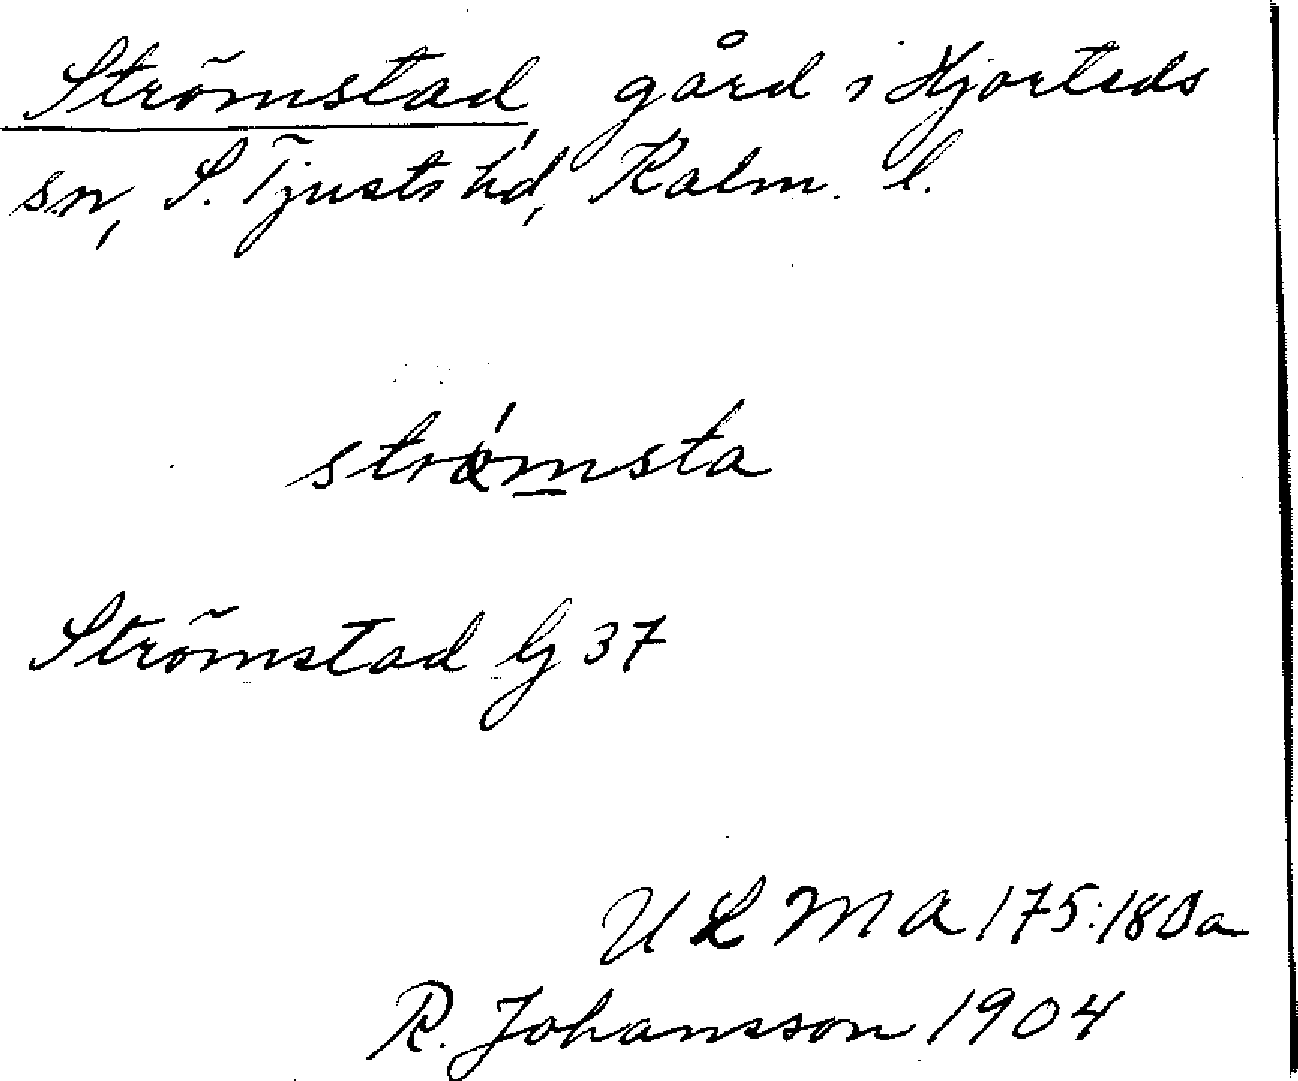 Strömstad gård i Hjorteds
sn, S. Tjusts hd, Kalm. l.
strǿmsta
Strömstad G 37
ULMA 175:18 Da
R. Johansson 1904